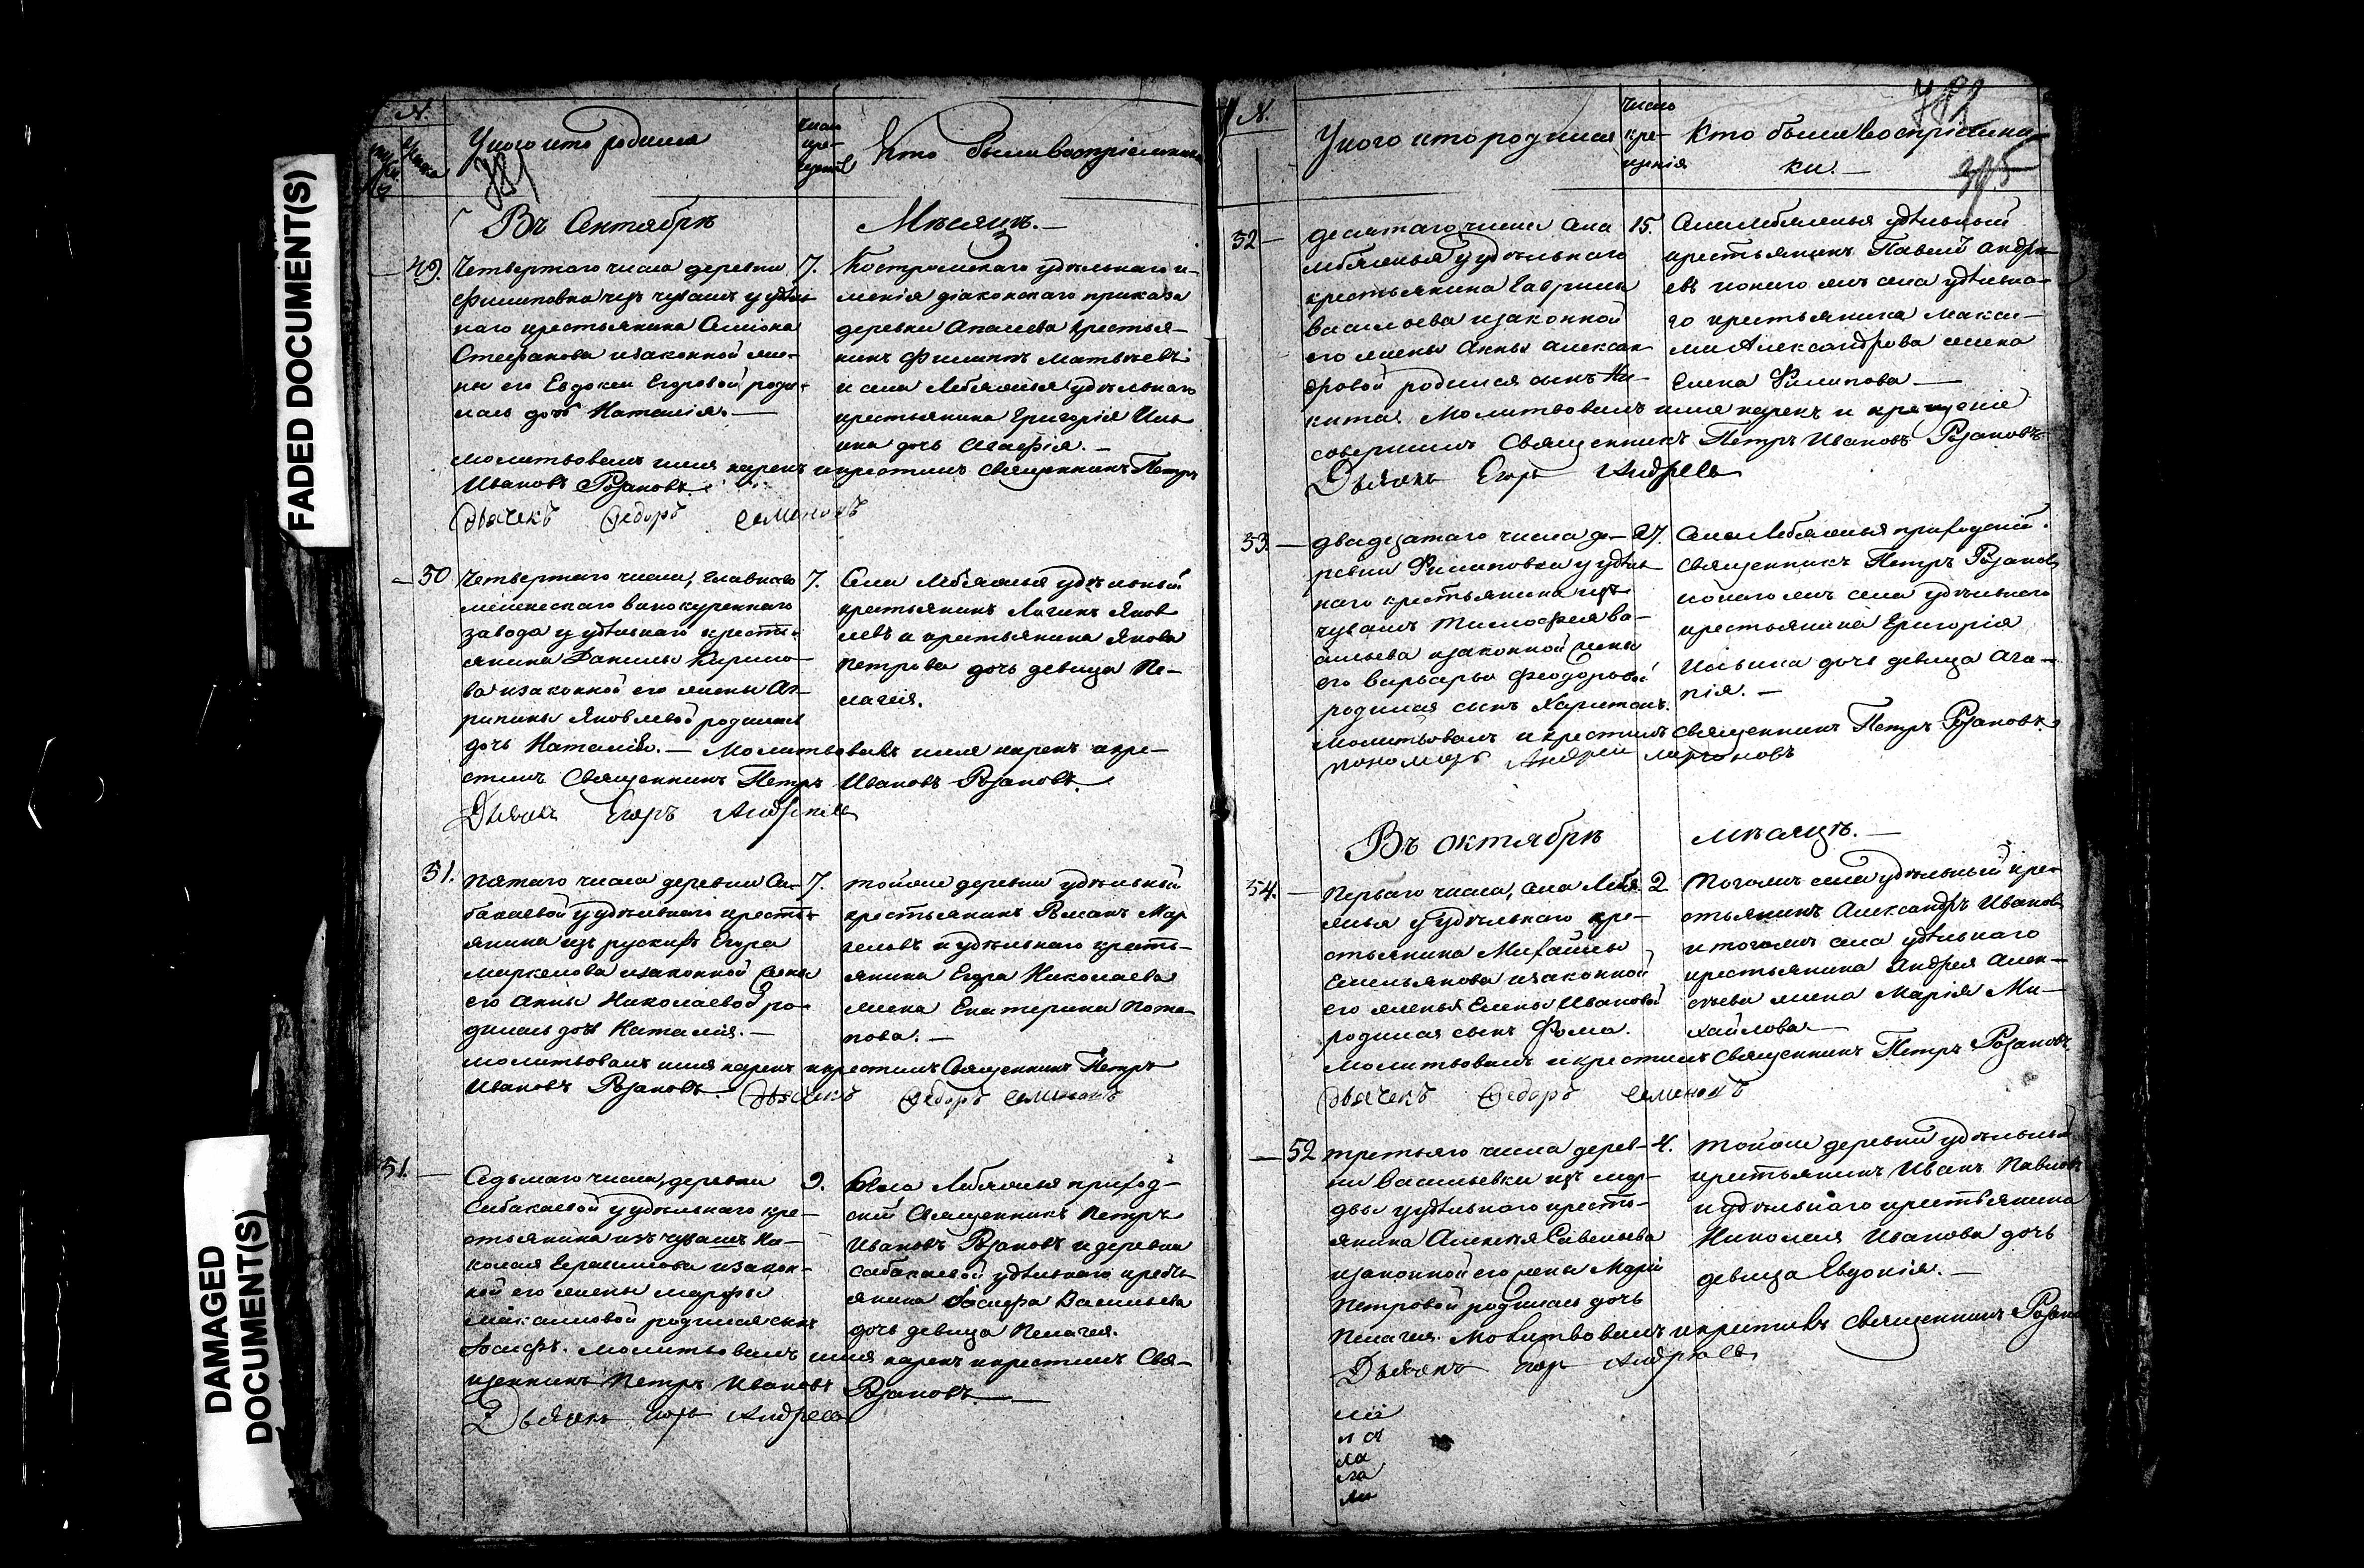 FADED DOCUMENT(S)
DAMAGED DOCUMENT(S)
№.
У кого кто родился
число крещенія
Кто были воспріемники
781
Въ Сентябрѣ Мѣсяцѣ.
49.
Четвертаго числа деревни
Филиповки изъ чувашъ у удѣль
наго крестьянина Симіона
Стефанова и законной же-
ны его Евдокеи Егоровой роди-
лась дочь Наталія.
7.
Костромскаго удѣльнаго и-
менія діаконскаго приказа
деревни крестья-
нинъ Филиппъ Матвѣевъ
и села Лебяжья удѣльнаго
крестьянина Григорія Иль
ина дочь Агафія.
молитвовалъ имя нарекъ и крестилъ священникъ Петръ
Ивановъ Розановъ.
Дьячекъ Федоръ Семеновъ
50
Четвертаго числа, главнаго
мелекескаго винокуреннаго
завода у удѣльнаго кресть-
янина Данилы Кирило-
ва и законной его жены Аг-
рипины Яковлевой родилась
дочь Наталія. — Молитвовалъ имя нарекъ и кре-
стилъ Священникъ Петръ Ивановъ Розановъ.
7.
Села Лебяжья удѣльный
крестьянинъ Логинъ Яков
левъ и крестьянина Якова
Петрова дочь девица Пе-
лагея.
Дьячокъ Егоръ Андреевъ
51.
Пятаго числа деревни Са-
бакаевой у удѣльнаго кресть-
янина изъ рускихъ Егора
Маркелова и законной жены
его Анны Николаевой ро-
дилась дочь Наталія.
7.
тойже деревни удѣльный
крестьянинъ Романъ Мар
келовъ и удѣльнаго кресть-
янина Егора Николаева
жена Екатерина Пота-
пова.
молитвовалъ имя нарекъ и крестилъ Священникъ Петръ
Ивановъ Розановъ. Дьячекъ Федоръ Семеновъ
51.
Седьмаго числа, деревни
Сабакаевой у удѣльнаго кре-
стьянина изъ чувашъ Ни-
колая Герасимова и закон-
ной его жены Марфы
Максимовой родился сынъ
Іосифъ. Молитвовалъ имя нарекъ и крестилъ Свя-
щенникъ Петръ Ивановъ Розановъ.
9.
Села Лебяжья приход-
ский Священникъ Петръ
Ивановъ Розановъ и деревни
Сабакаевой удѣльнаго кресть
янина Іосифа Васильева
дочь девица Пелагея.
Дьячокъ Егоръ Андреевъ
№.
У кого кто родился
число крещенія
Кто были воспріемники.
395
52
десятаго числа села
Лебяжья у удѣльнаго
крестьянина Гаврилы
Васильева и законной
его жены Анны Алексан
дровой родился сынъ Ни-
кита. Молитвовалъ имя нарекъ и крещеніе
совершилъ Священникъ Петръ Ивановъ Розановъ
15.
Села Лебяжья удѣльный
крестьянинъ Павелъ Андре
евъ и тогожъ села удѣльна-
го крестьянина Макси-
ма Александрова жена
Елена Филипова
Дьячокъ Егоръ Андреевъ
53.
двадцатаго числа де-
ревни Филиповки у удѣль
наго крестьянина изъ
чувашъ Тимофея Ва-
сильева и законной жены
его Варвары Феодоровой
родился сынъ Харитонъ.
27.
Села Лебяжья приходскій
священникъ Петръ Розановъ
и тогожъ села удѣльнаго
крестьянина Григорія
Ильина дочь девица Ага-
пія.
Молитвовалъ и крестилъ священникъ Петръ Розановъ
пономарь Андрей
Въ октябрѣ мѣсяцѣ.
54.
Перваго числа, села Лебя
жья у удѣльнаго кре-
стьянина Михайлы
Емельянова и законной
его жены Елены Ивановой
родился сынъ Фома.
2
Тогожъ села удѣльный кре-
стьянинъ Александръ Ивановъ
и тогожъ села удѣльнаго
крестьянина Андрея Алек-
сѣева жена Марія Ми-
хайлова
Молитвовалъ и крестилъ Священникъ Петръ Розановъ
Дьячекъ Федоръ Семеновъ
52
третьяго числа дерев-
ни Васильевки изъ мор-
двы у удѣльнаго кресть-
янина Алексѣя Савельева
и законной его жены Маріи
Петровой родилась дочь
Пелагея. Молитвовалъ и крестилъ Священникъ Розановъ
4.
тойже деревни удѣльный
крестьянинъ Иванъ Павловъ
и удѣльнаго крестьянина
Николая Иванова дочь
девица Евдокія.
Дьячокъ Егоръ Андреевъ